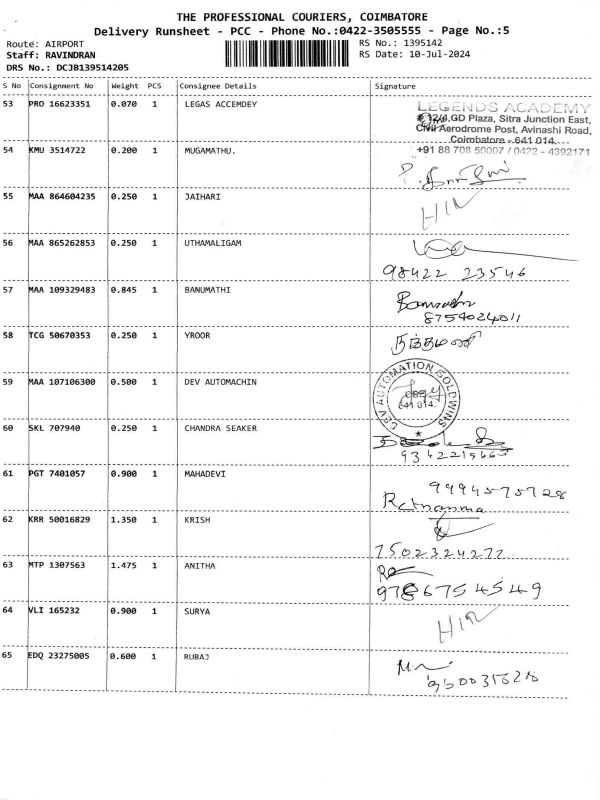 THE PROFESSIONAL COURIERS, COIMBATORE
Delivery Runsheet - PCC - Phone No.:0422-3505555 - Page No.:5
Route: AIRPORT RS No.: 1395142
Staff: RAVINDRAN RS Date: 10-Jul-2024
DRS No.: DCJB139514205
S No Consignment No Weight PCS Consignee Details Signature
53 PRO 16623351 0.070 1 LEGAS ACCEMDEY
LEGENDS ACADEMY
GD Plaza, Sitra Junction East,
Civil Aerodrome Post, Avinashi Road,
Coimbatore - 641 014.
+91 88 708 50007 / 0422 - 4392171
54 KMU 3514722 0.200 1 MUGAMATHU.
55 MAA 864604235 0.250 1 JAIHARI
56 MAA 865262853 0.250 1 UTHAMALIGAM
98422 23546
57 MAA 109329483 0.845 1 BANUMATHI
8754024011
58 TCG 50670353 0.250 1 YROOR
59 MAA 107106300 0.500 1 DEV AUTOMACHIN
DEV AUTOMATION GOLDWINS
641 014.
60 SKL 707940 0.250 1 CHANDRA SEAKER
61 PGT 7401057 0.900 1 MAHADEVI
9994575728
Ratnamma
62 KRR 50016829 1.350 1 KRISH
7502324272
63 MTP 1307563 1.475 1 ANITHA
9786754549
64 VLI 165232 0.900 1 SURYA
65 EDQ 23275005 0.600 1 RUBAJ